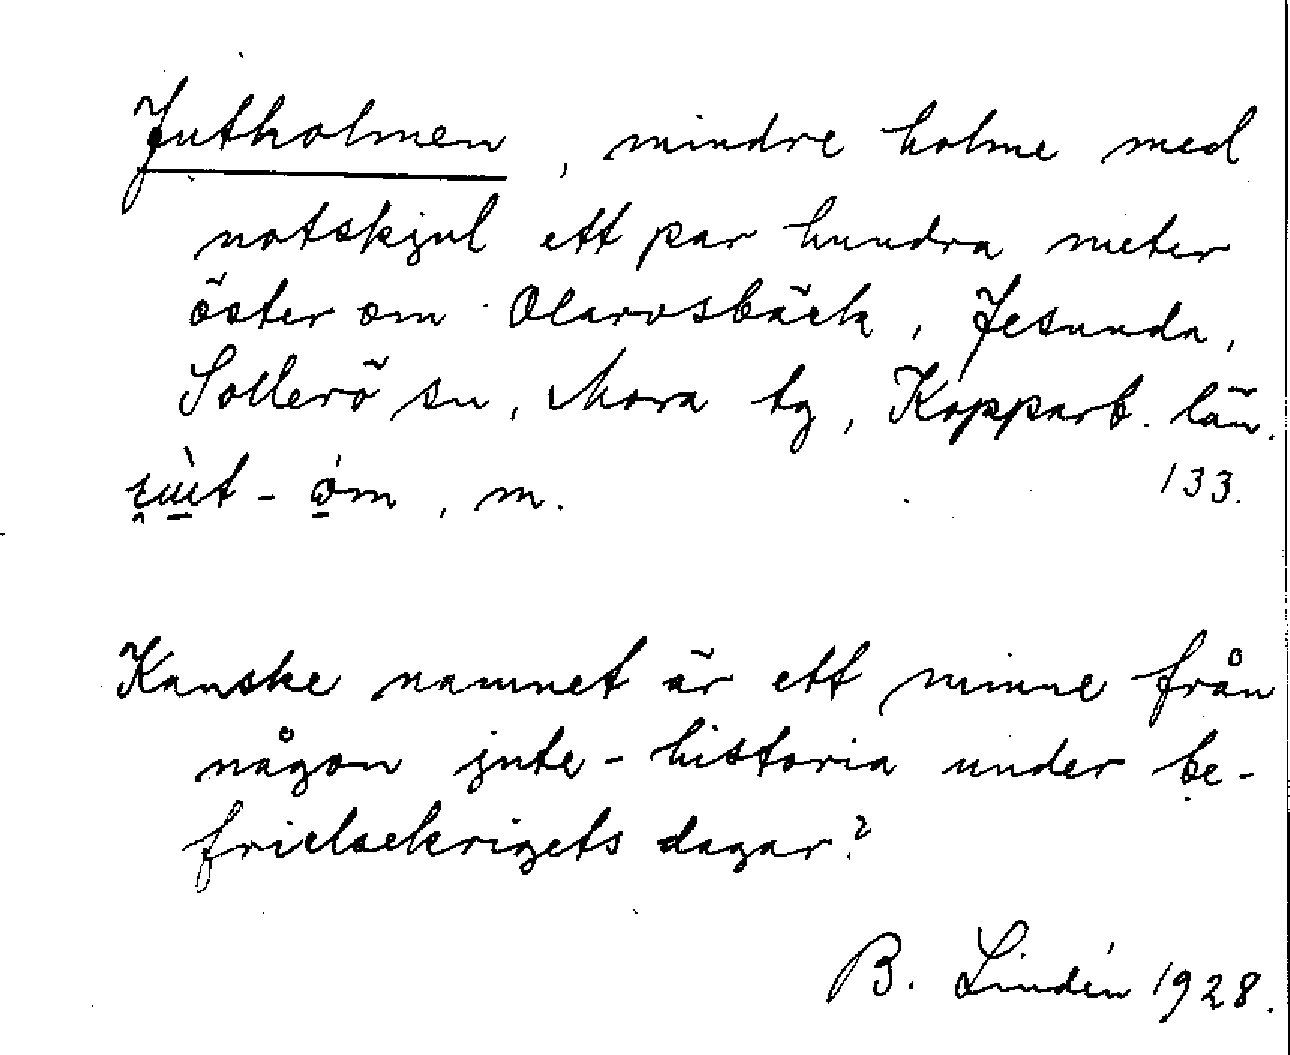 Jutholmen, mindre holme med
notskjul ett par hundra meter
öster om Olarvsbäck, Jesunda,
Sollerö sn, Mora tg, Kopparb. län.
133.
-óm, m.
Kanske namnet är ett minne från
någon jute-historia under be-
frielsekrigets dagar?
B. Lindén 1928.